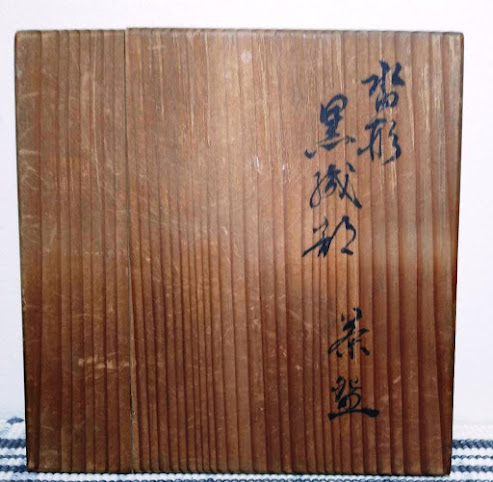 沓形
黒織部 茶盌